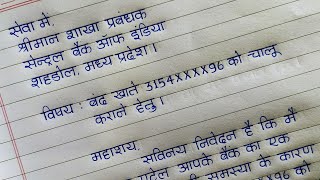 सेवा में,
श्रीमान शाखा प्रबंधक
सेन्ट्रल बैंक ऑफ इंडिया
शहडोल, मध्य प्रदेश।
विषय : बंद खाते 3154XXXX96 को चालू
कराने हेतु।
महाशय,
सविनय निवेदन है कि मैं
पटेल आपके बैंक का एक
समस्या के कारण
96 को